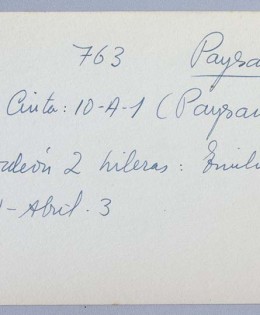 763 Paysa
Cinta: 10-A-1 (Paysan
rdeón 2 hileras: Emili
- Abril. 3